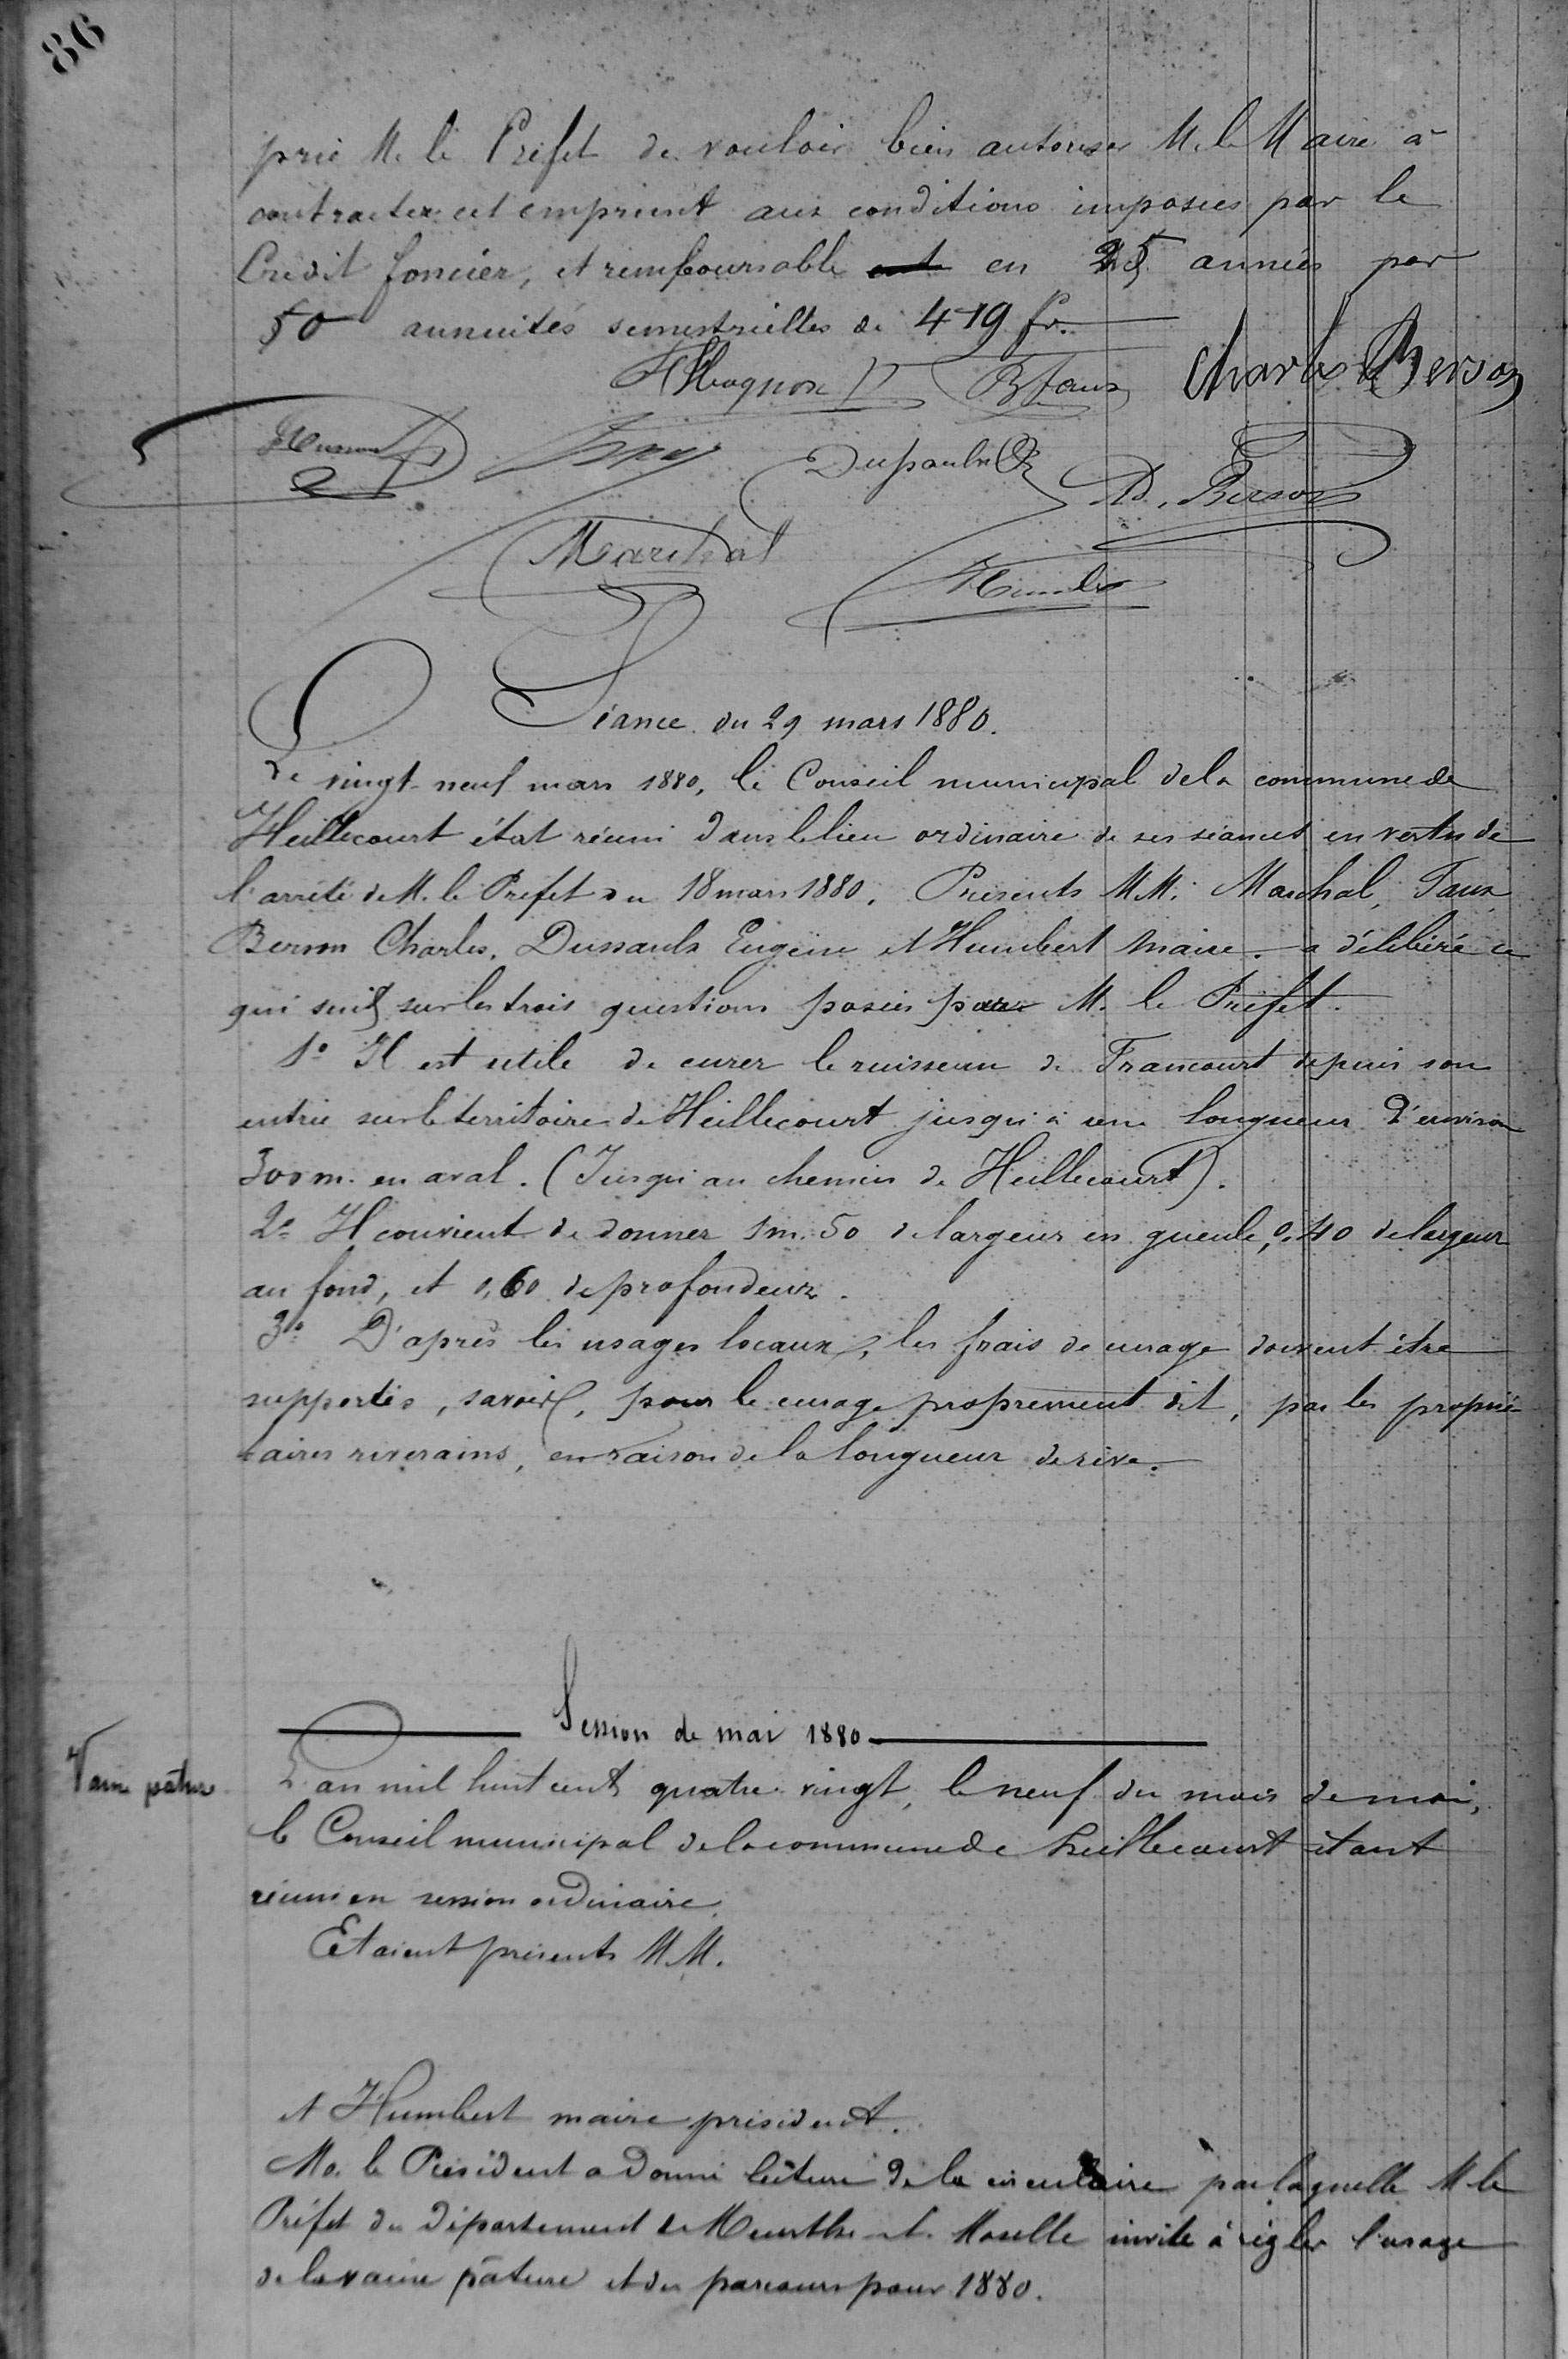 86
prie M. le Préfet de vouloir bien autoriser M. le Maire à
contracter cet emprunt aux conditions imposées par le
Crédit foncier, et remboursable en 25 années par
50 annuités semestrielles de 419 fr.
Charles Berson
Marchal
Séance du 29 mars 1880.
Le vingt-neuf mars 1880, le Conseil municipal de la commune de
Heillecourt état réuni dans le lieu ordinaire de ses séances en vertu de
l'arrêté de M. le Préfet du 18 mars 1880. Présents MM. Marchal, Faux,
Berson Charles, Eugène et Humbert Maire. a délibéré ce
qui suit sur les trois questions posées par M. le Préfet.
1° Il est utile de curer le ruisseau de Francourt depuis son
entrée sur le territoire de Heillecourt jusqu'à une longueur d'environ
300 m. en aval. (Jusqu'au chemin de Heillecourt).
2° Il convient de donner 1m.50 de largeur en gueule, 0,40 de largeur
au fond, et 0,60 de profondeur.
3° D'après les usages locaux, les frais de curage doivent être
supportés, savoir, pour le curage proprement dit, par les proprié-
taires riverains, en raison de la longueur de rive.
Session de mai 1880
Vaine pâture
L'an mil huit cent quatre-vingt, le neuf du mois de mai,
le Conseil municipal de la commune de heillecourt étant
réuni en session ordinaire.
Etaient présents MM.
et Humbert maire président.
Mo. le Président a donné lecture de la circulaire par laquelle M le
Préfet du Département de Meurthe-et-Moselle invite à régler l'usage
de la vaine pâture et du parcours pour 1880.